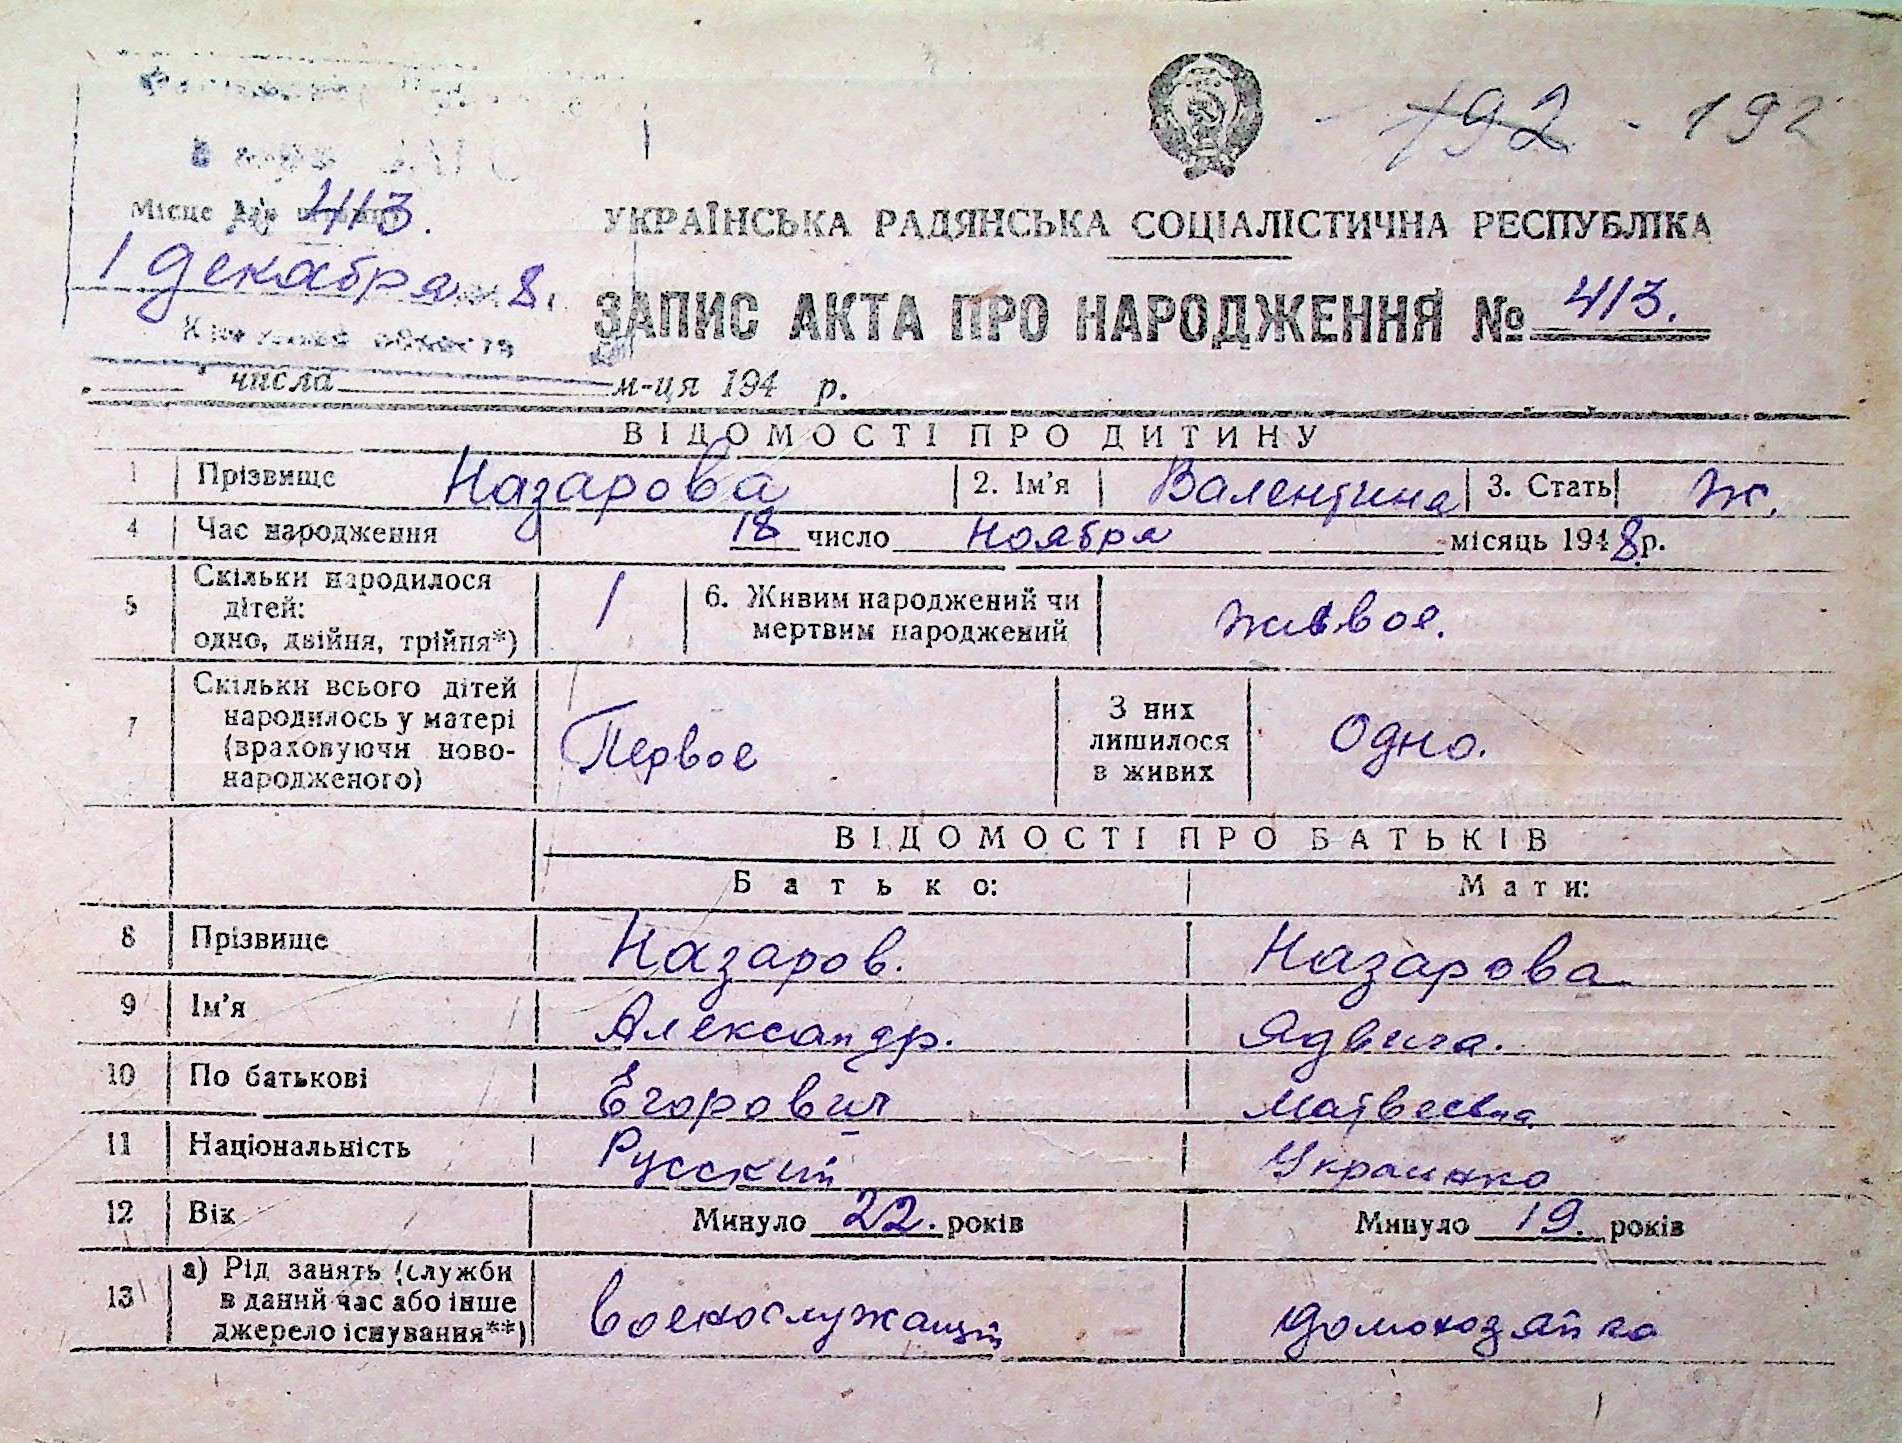 192 - 192
Місце для штампу
№ 413.
1 декабря 8.
УКРАЇНСЬКА РАДЯНСЬКА СОЦІАЛІСТИЧНА РЕСПУБЛІКА
ЗАПИС АКТА ПРО НАРОДЖЕННЯ № 413.
числа м-ця 194 р.
ВІДОМОСТІ ПРО ДИТИНУ
1 Прізвище Назарова 2. Ім'я Валентина 3. Стать Ж.
4 Час народження 18 число Ноября місяць 1948 р.
5 Скільки народилося
дітей:
одно, двійня, трійня*) 1
6. Живим народжений чи
мертвим народжений живое.
7 Скільки всього дітей
народилось у матері
(враховуючи ново-
народженого) Первое
З них
лишилося
в живих Одно.
ВІДОМОСТІ ПРО БАТЬКІВ
Батько: Мати:
8 Прізвище Назаров. Назарова
9 Ім'я Александр. Ядвига.
10 По батькові Егорович Матвеевна
11 Національність Русский Украинка
12 Вік Минуло 22. років Минуло 19. років
13 а) Рід занять (служби
в даний час або інше
джерело існування**) военослужащий домохозяйка